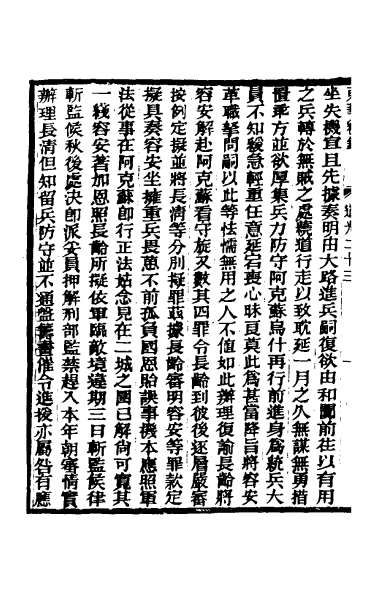 坐失機宜且先據奏明由大路進兵嗣復欲由和闐前往以有用
之兵轉於無賊之處繞道行走以致耽延一月之久無謀無勇措
置乖方並欲厚集兵力防守阿克蘇烏什再行前進身爲統兵大
員不知緩急輕重任意延宕喪心昧良莫此爲甚當降旨將容安
革職拏問嗣以此等怯懦無用之人不值如此辦理復諭長齡將
容安解赴阿克蘇看守旋又數其四罪令長齡到彼後逐層嚴審
按例定擬並將長清等分別擬罪茲據長齡審明容安等罪款定
擬具奏容安坐擁重兵畏葸不前孤負國恩貽誤事機本應照軍
法從事在阿克蘇卽行正法姑念見在二城之圍已解尚可寬其
一綫容安著加恩照長齡所擬依軍臨敵境違期三日斬監候律
斬監候秋後處決卽派妥員押解刑部監禁趕入本年朝審情實
辦理長清但知留兵防守並不通盤籌畫催令進援亦屬咎有應